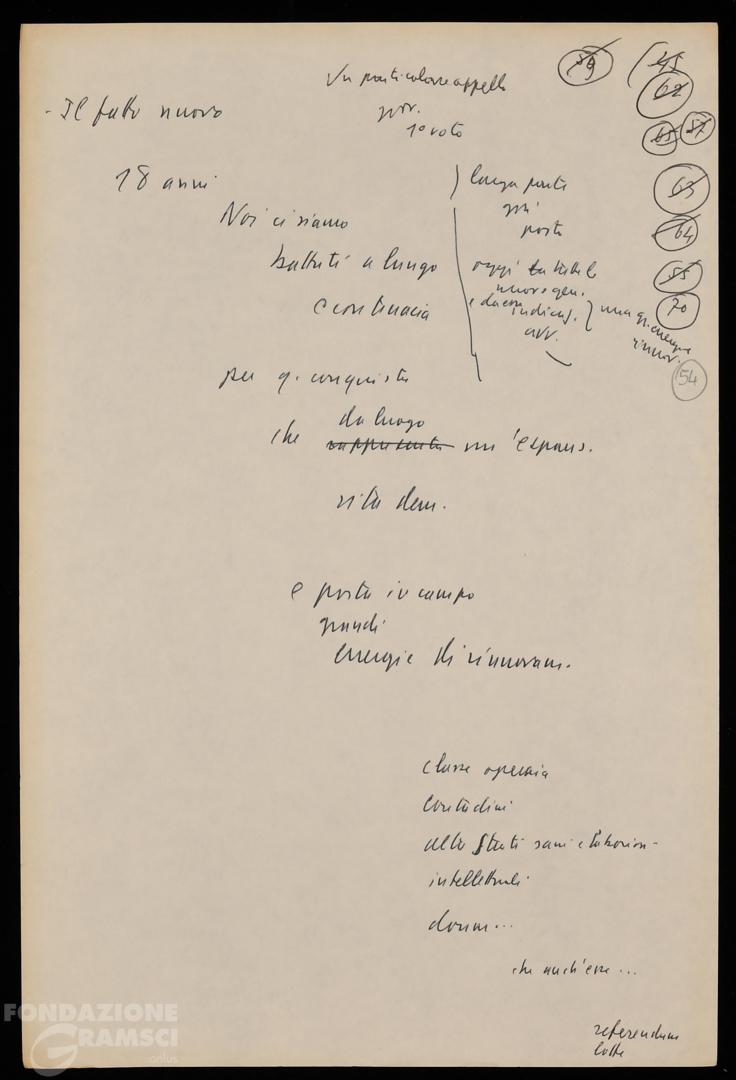 Un particolare appello
giov.
1° voto
59
45
62
65 57
63
64
55
70
54
- Il fatto nuovo
18 anni
Noi ci siamo
battuti a lungo
e continuacia
larga parte
più
parte
oggi
nuove gen.
indicaz.
avv.
una q. energie
rinnov.
per q. conquista
da luogo
che rappresenta un'espans.
vita dem.
e porta in campo
grandi
energie di rinnovam.
classe operaia
contadini
altri strati sani e laborios-
intellettuali
donne...
che anch'esse...
referendum
lotte
FONDAZIONE
GRAMSCI
onlus